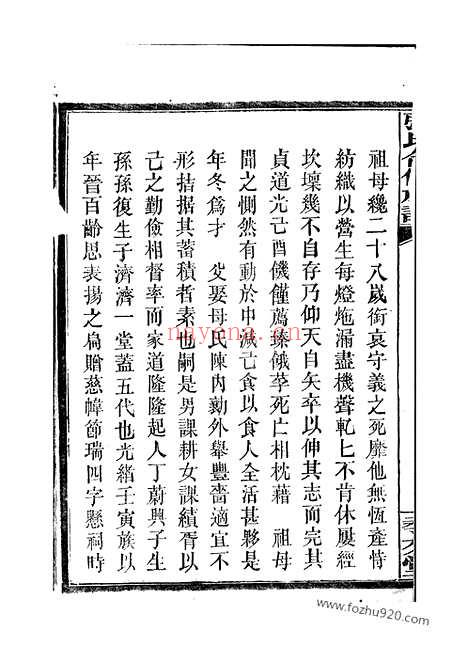 祖母纔二十八歲銜哀守義之死靡他無恆產恃
紡織以營生每燈炧漏盡機聲軋匕不肯休屢經
坎壈幾不自存乃仰天自矢卒以伸其志而完其
貞道光己酉饑饉薦臻餓莩死亡相枕藉 祖母
聞之惻然有動於中減己食以食人全活甚夥是
年冬爲才 父娶母氏陳內勷外舉豐嗇適宜不
形拮据其蓄積者素也嗣是男課耕女課績胥以
己之勤儉相督率而家道隆隆起人丁蔚興子生
孫孫復生子濟濟一堂蓋五代也光緒壬寅族以
年晉百齡思表揚之扁贈慈幃節瑞四字懸祠時
nayona.cn
www.fozhu920.com